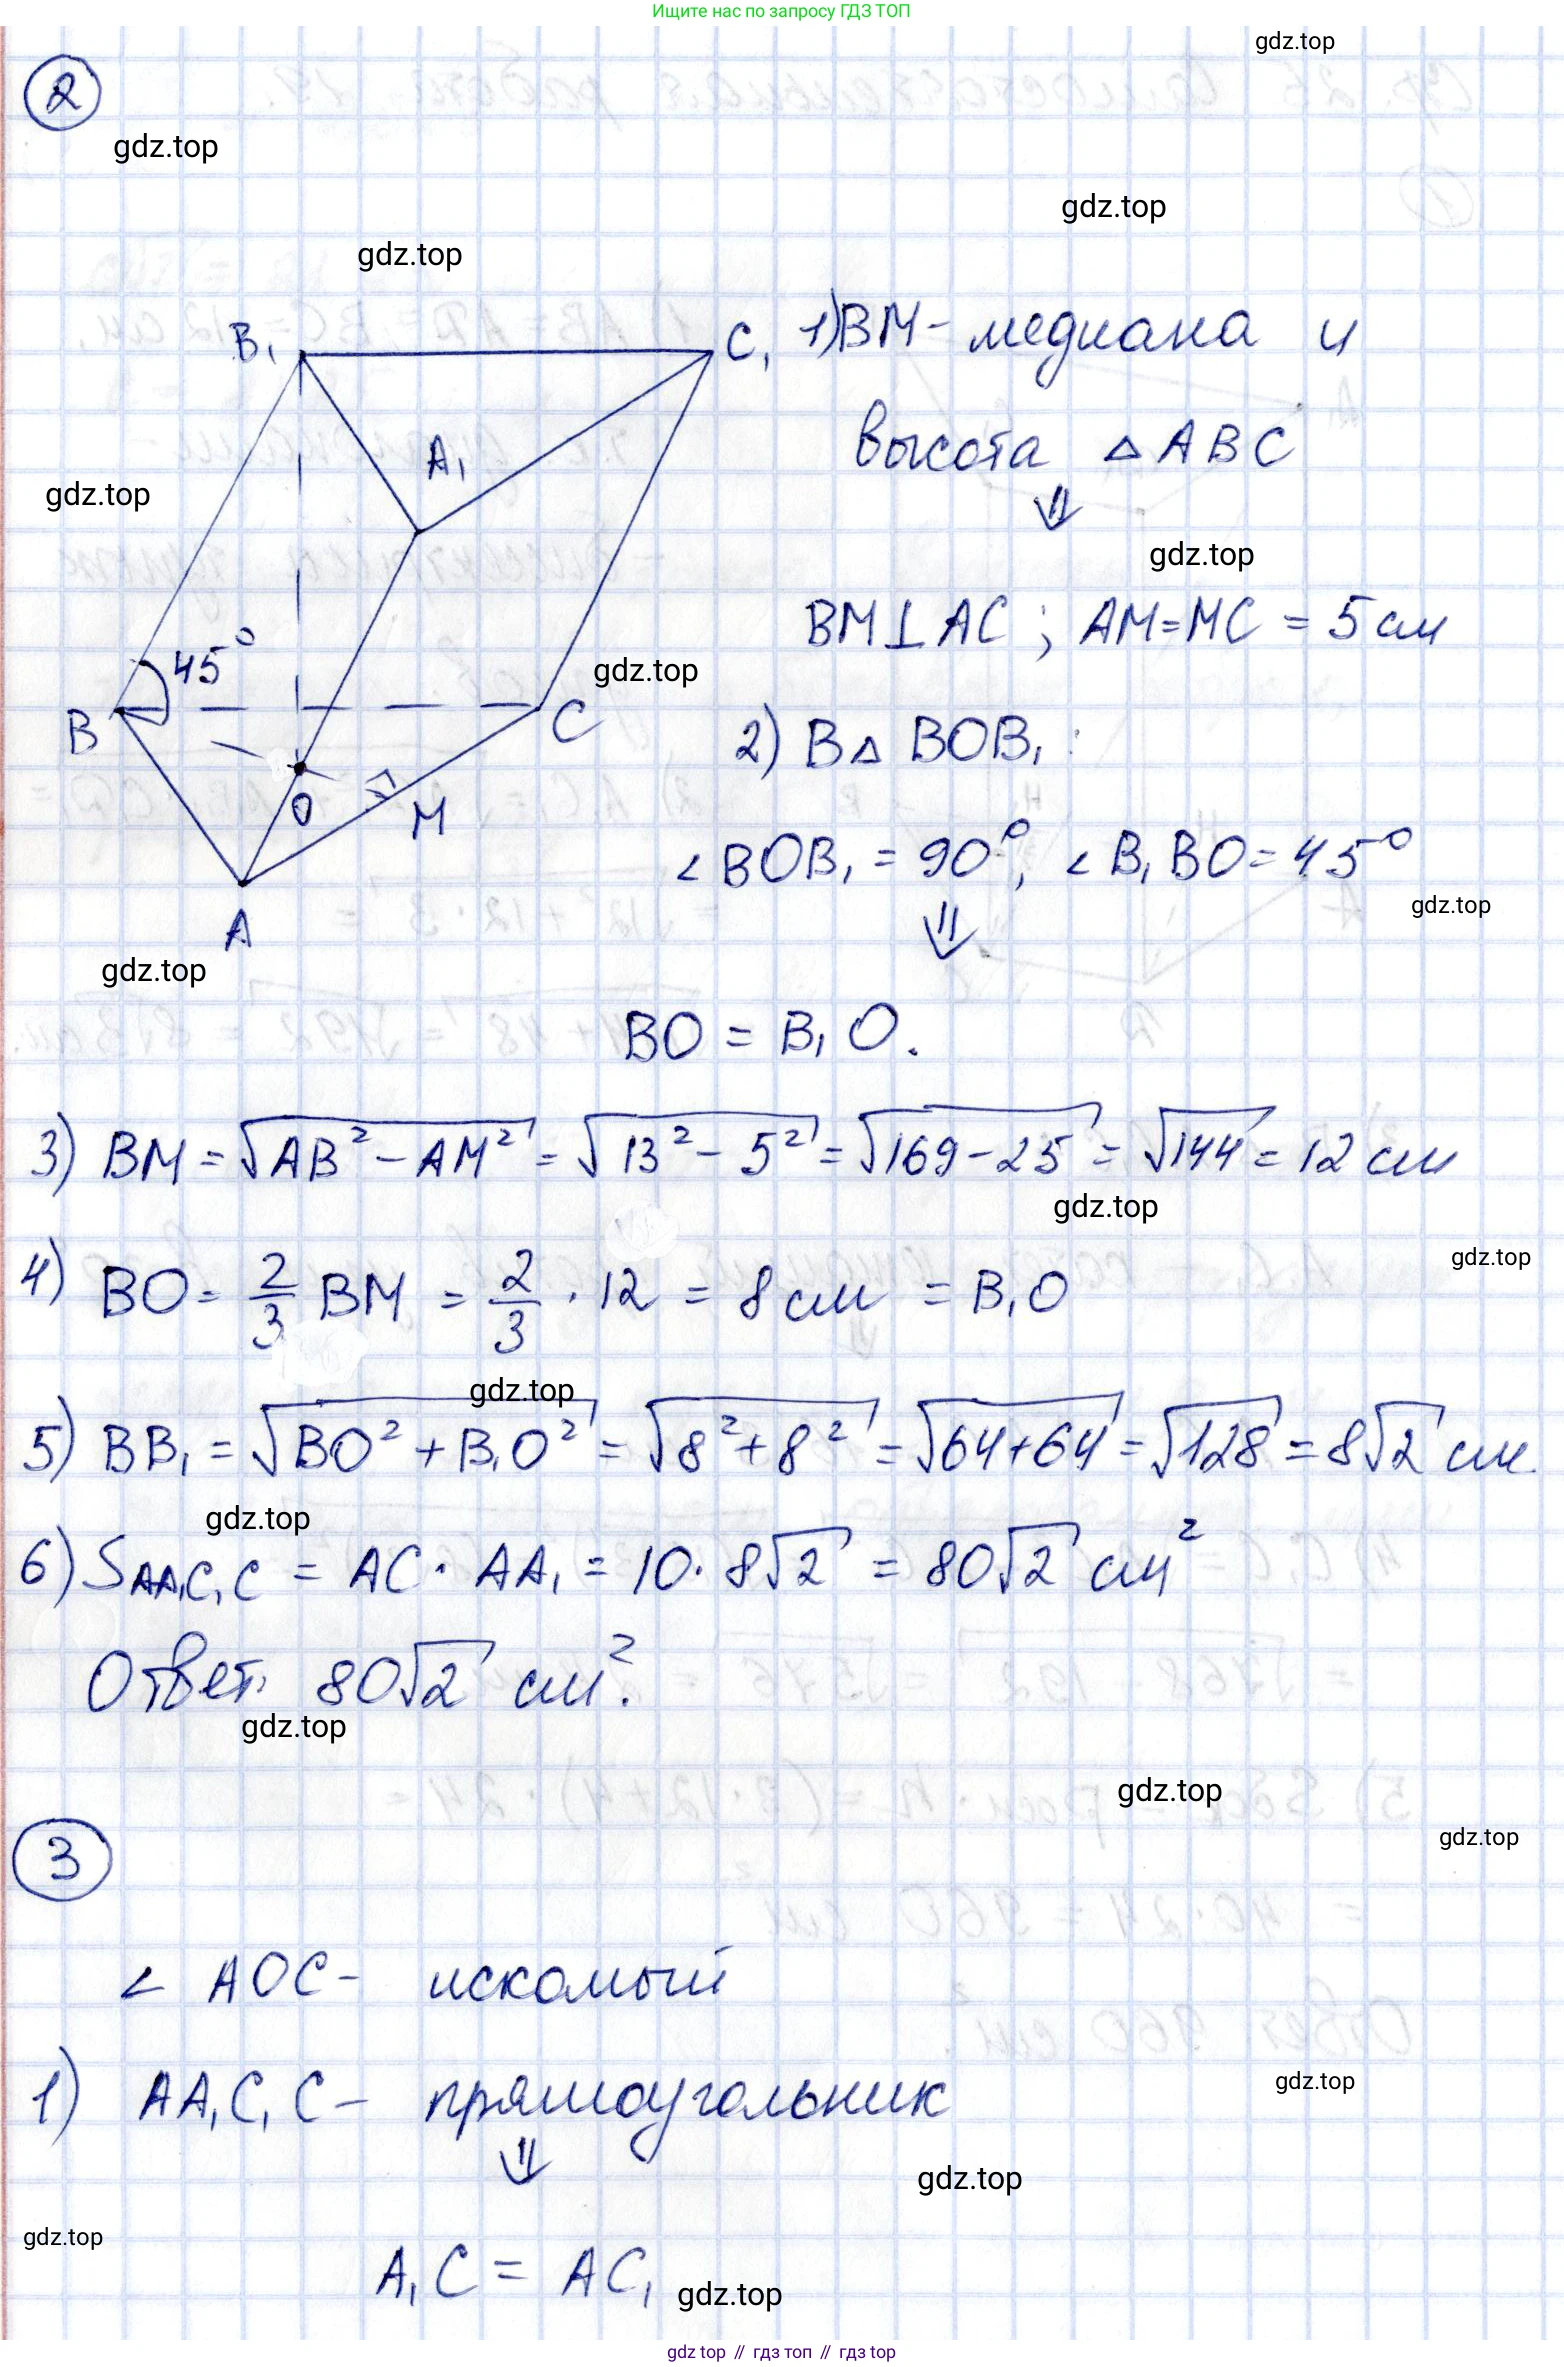 Ищите нас по запросу ГДЗ ТОП
gdz.top
②
gdz.top
gdz.top
gdz.top
B₁
C₁
1) BM - медиана и
A₁
высота △ABC
⇓
gdz.top
gdz.top
BM⊥AC; AM=MC = 5 см
45°
gdz.top
B
C
2) В △ BOB₁:
O
M
∠BOB₁ = 90°, ∠B₁BO = 45°
gdz.top
⇓
A
gdz.top
BO = B₁O.
3) BM = √(AB² - AM²) = √(13² - 5²) = √(169-25) = √144 = 12 см
gdz.top
gdz.top
4) BO = 2/3 BM = 2/3 · 12 = 8 см = B₁O
gdz.top
5) BB₁ = √(BO² + B₁O²) = √(8² + 8²) = √(64+64) = √128 = 8√2 см
gdz.top
6) S AA₁C₁C = AC · AA₁ = 10 · 8√2 = 80√2 см²
Ответ: 80√2 см².
gdz.top
gdz.top
gdz.top
③
∠ AOC - искомый
1) AA₁C₁C - прямоугольник
gdz.top
⇓
gdz.top
gdz.top
A₁C = AC₁
gdz.top
gdz.top // гдз топ // гдз top